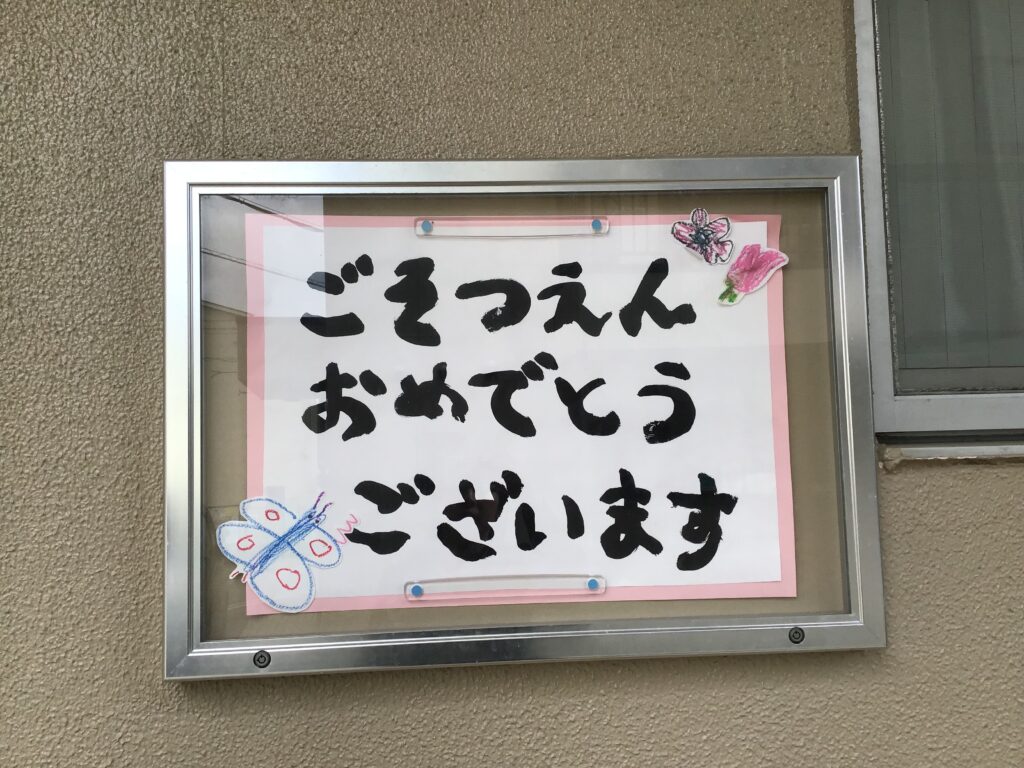 ごそつえん
おめでとう
ございます